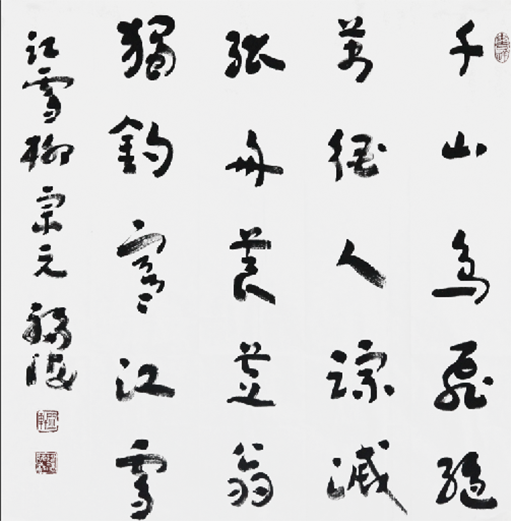 千山鳥飛絕
萬徑人踪滅
孤舟蓑笠翁
獨釣寒江雪
江雪柳宗元